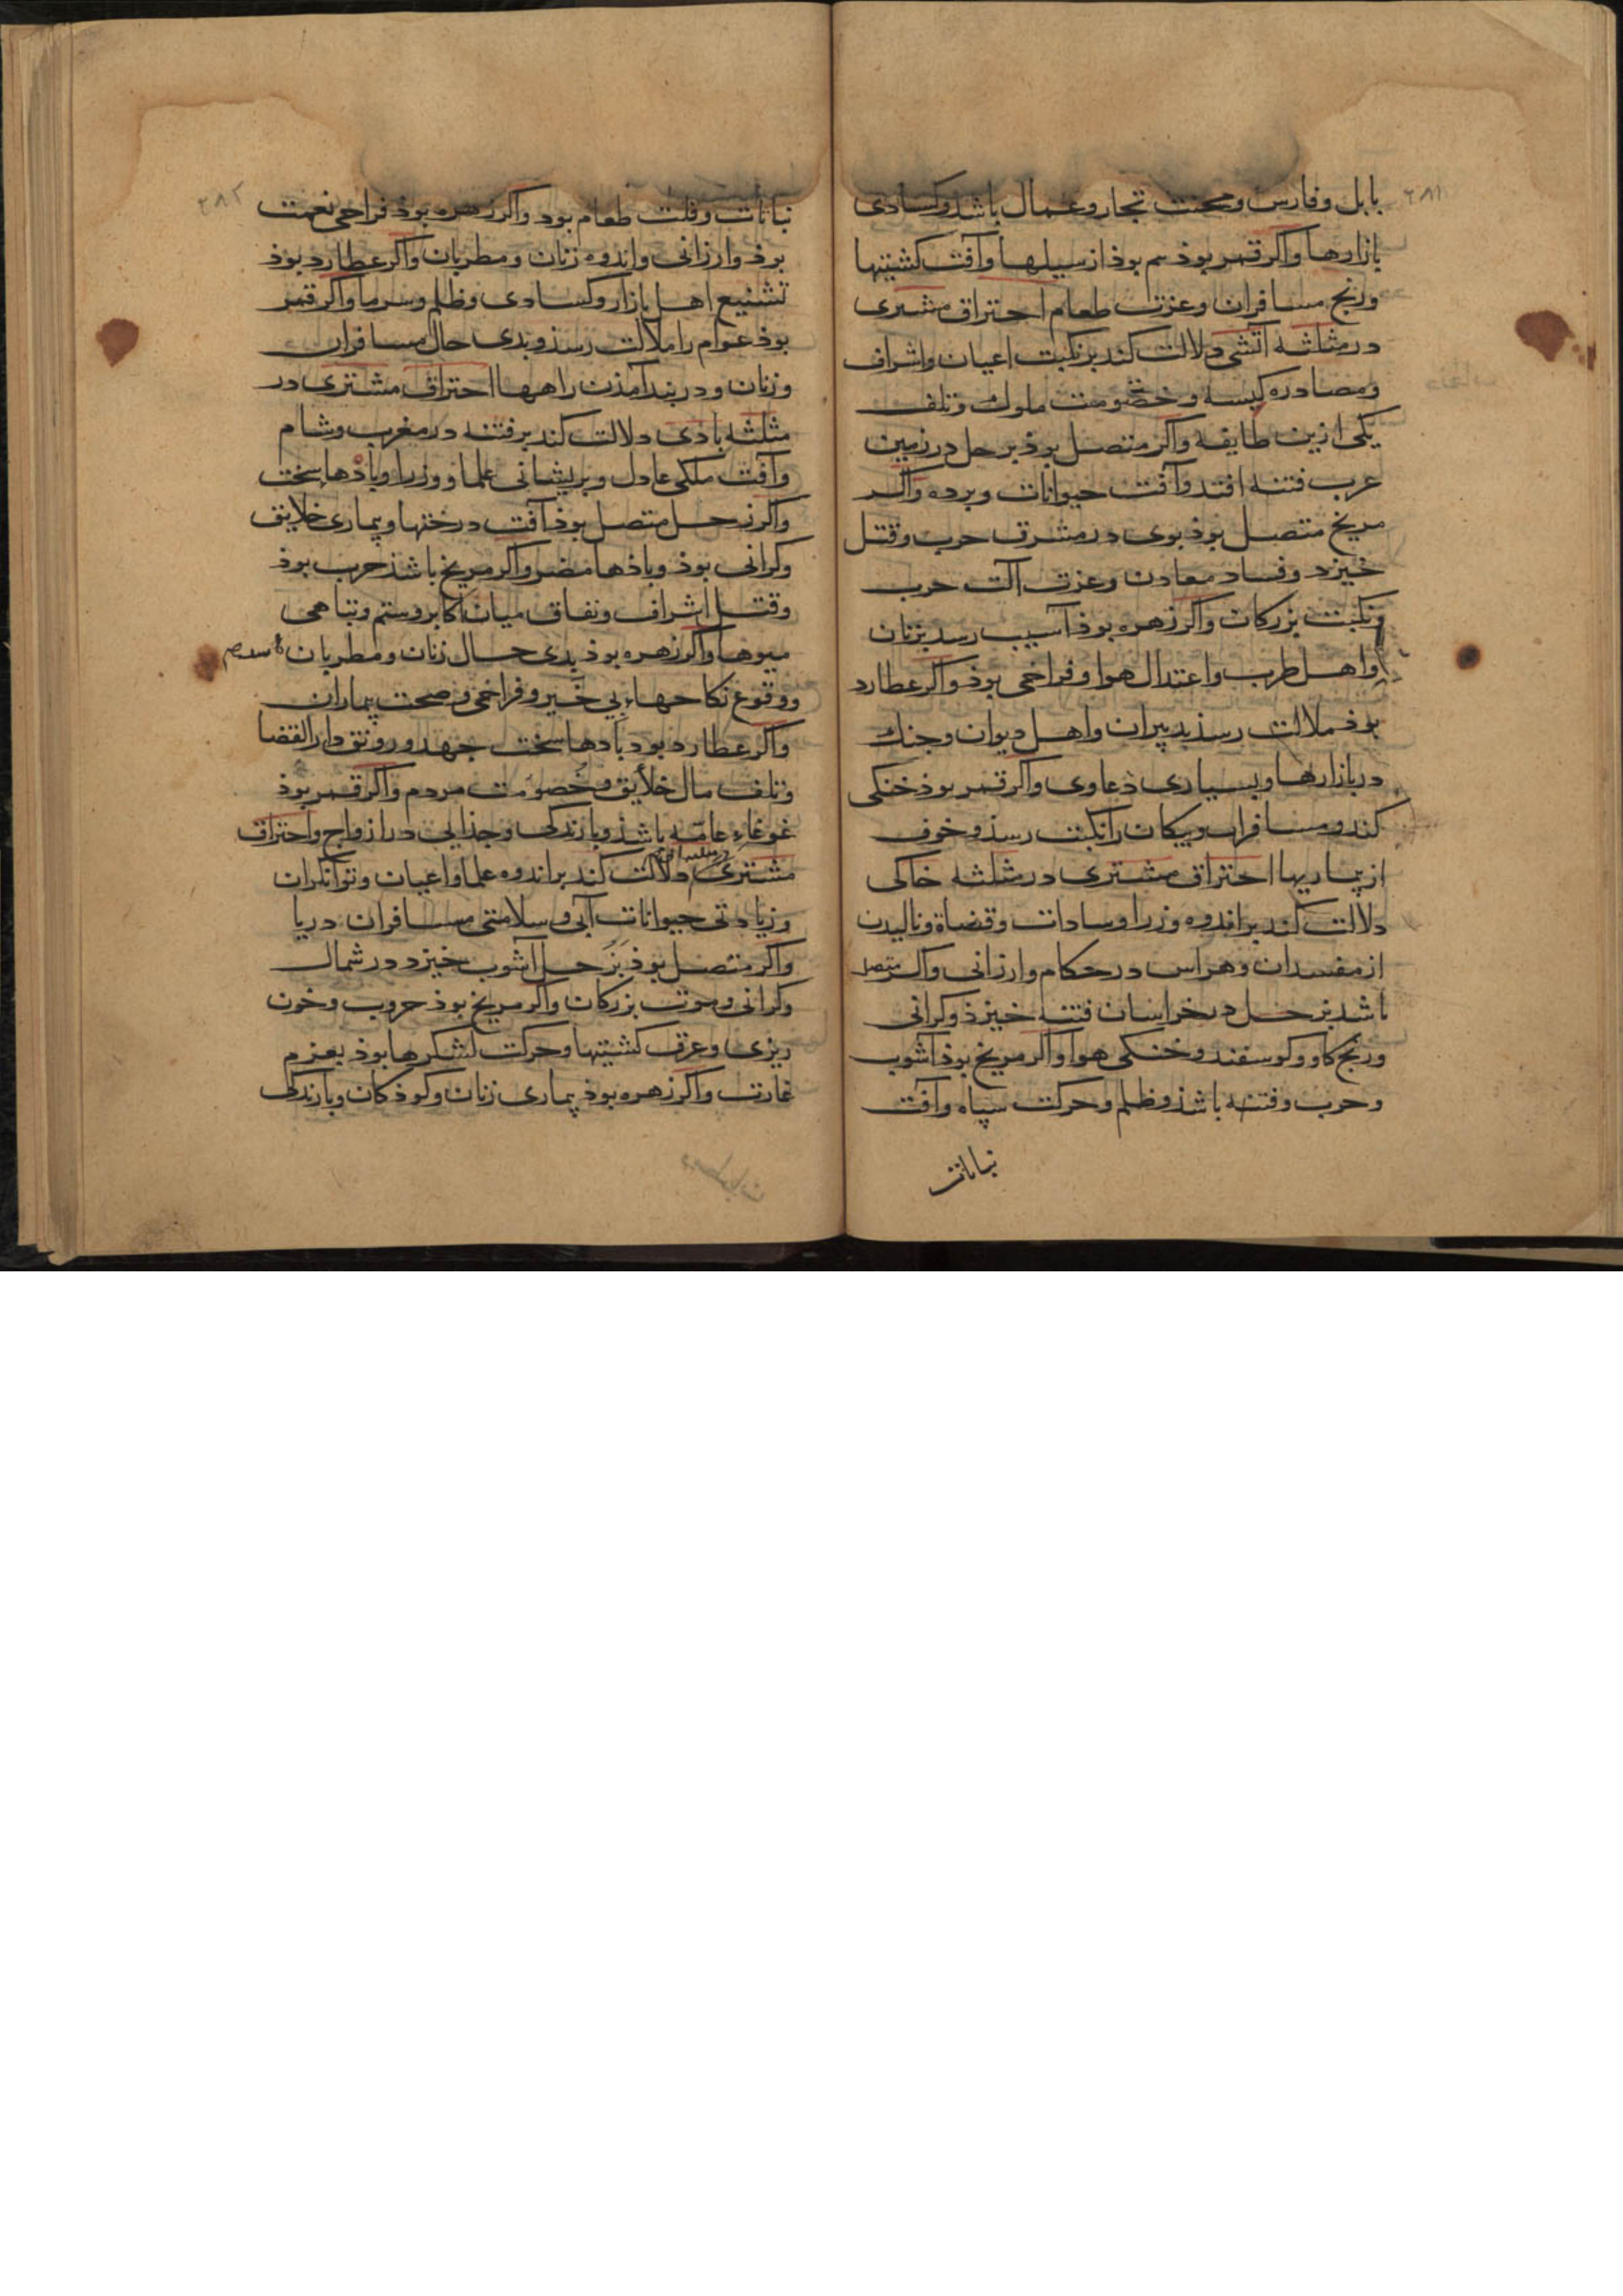 ۲۸۱
بابل و فارس و محنت تجار و عمال باشذ و کسادی
بازارها و اکر قمر بوذ بیم بوذ از سیلها و آفت کشتیها
و رنج مسافران و عزت طعام احتراق مشتری
در مثلثه آتشی دلالت کند بر نکبت اعیان و اشراف
و مصادره کیسه و خصومت ملوک و تلف
یکی ازین طایفه و اکر متصل بوذ بزحل در زمین
عرب فتنه افتد و آفت حیوانات و برده و اکر
مریخ متصل بوذ بوی در مشرق حرب و قتل
خیزد و فساد معادن و عزت آلت حرب
و نکبت بزرکان و اکر زهره بوذ آسیب رسد بزنان
و اهل طرب و اعتدال هوا و فراخی بوذ و اکر عطارد
بوذ ملالت رسذ بدبیران و اهل دیوان و جنک
در بازارها و بسیاری دعاوی و اکر قمر بوذ خنکی
کند و مسافران و پیکان را نکبت رسذ و خوف
از بیماریها احتراق مشتری در مثلثه خاکی
دلالت کند بر اندوه وزرا و سادات و قضاة و نالیدن
از مفسدان و هراس در حکام و ارزانی و اکر متصل
باشد بزحل در خراسان فتنه خیزذ و کرانی
و رنج کاو و کوسفند و خنکی هوا و اکر مریخ بوذ آشوب
و حرب و فتنه باشذ و ظلم و حرکت سپاه و آفت
نباتات
۲۸۲
نباتات و قلت طعام بود و اکر زهره بوذ فراخی نعمت
بوذ و ارزانی و اندوه زنان و مطربان و اکر عطارد بوذ
تشنیع اهل بازار و کسادی و ظلم و سرما و اکر قمر
بوذ عوام را ملالت رسذ و بدی حال مسافران
و زنان و در بند آمذن راهها احتراق مشتری در
مثلثه بادی دلالت کند بر فتنه در مغرب و شام
و آفت ملکی عادل و پریشانی علما و وزرا و بادها سخت
و اکر زحل متصل بوذ آفت درختها و بیماری خلایق
و کرانی بوذ و باذها مضر و اکر مریخ باشذ حرب بوذ
و قتل اشراف و نفاق میان اکابر و ستم و تباهی
میوها و اکر زهره بوذ بدی حال زنان و مطربان
و وقوع نکاحهاء بی خیر و فراخی و صحت بیماران
و اکر عطارد بود بادها سخت جهد و رونق دار القضا
و تلف مال خلایق و خصومت مردم و اکر قمر بوذ
غوغاء عامه باشذ و بارندکی و جذایی در ازواج و احتراق
مشتری در مثلثه آبی دلالت کند بر اندوه علما و اعیان و توانکران
و زیادتی حیوانات آبی و سلامتی مسافران دریا
و اکر متصل بوذ بزحل آشوب خیزد در شمال
و کرانی و موت بزرکان و اکر مریخ بوذ حروب و خون
ریزی و غرق کشتیها و حرکت لشکرها بوذ بعزم
غارت و اکر زهره بوذ بیماری زنان و کوذکان و بارندکی